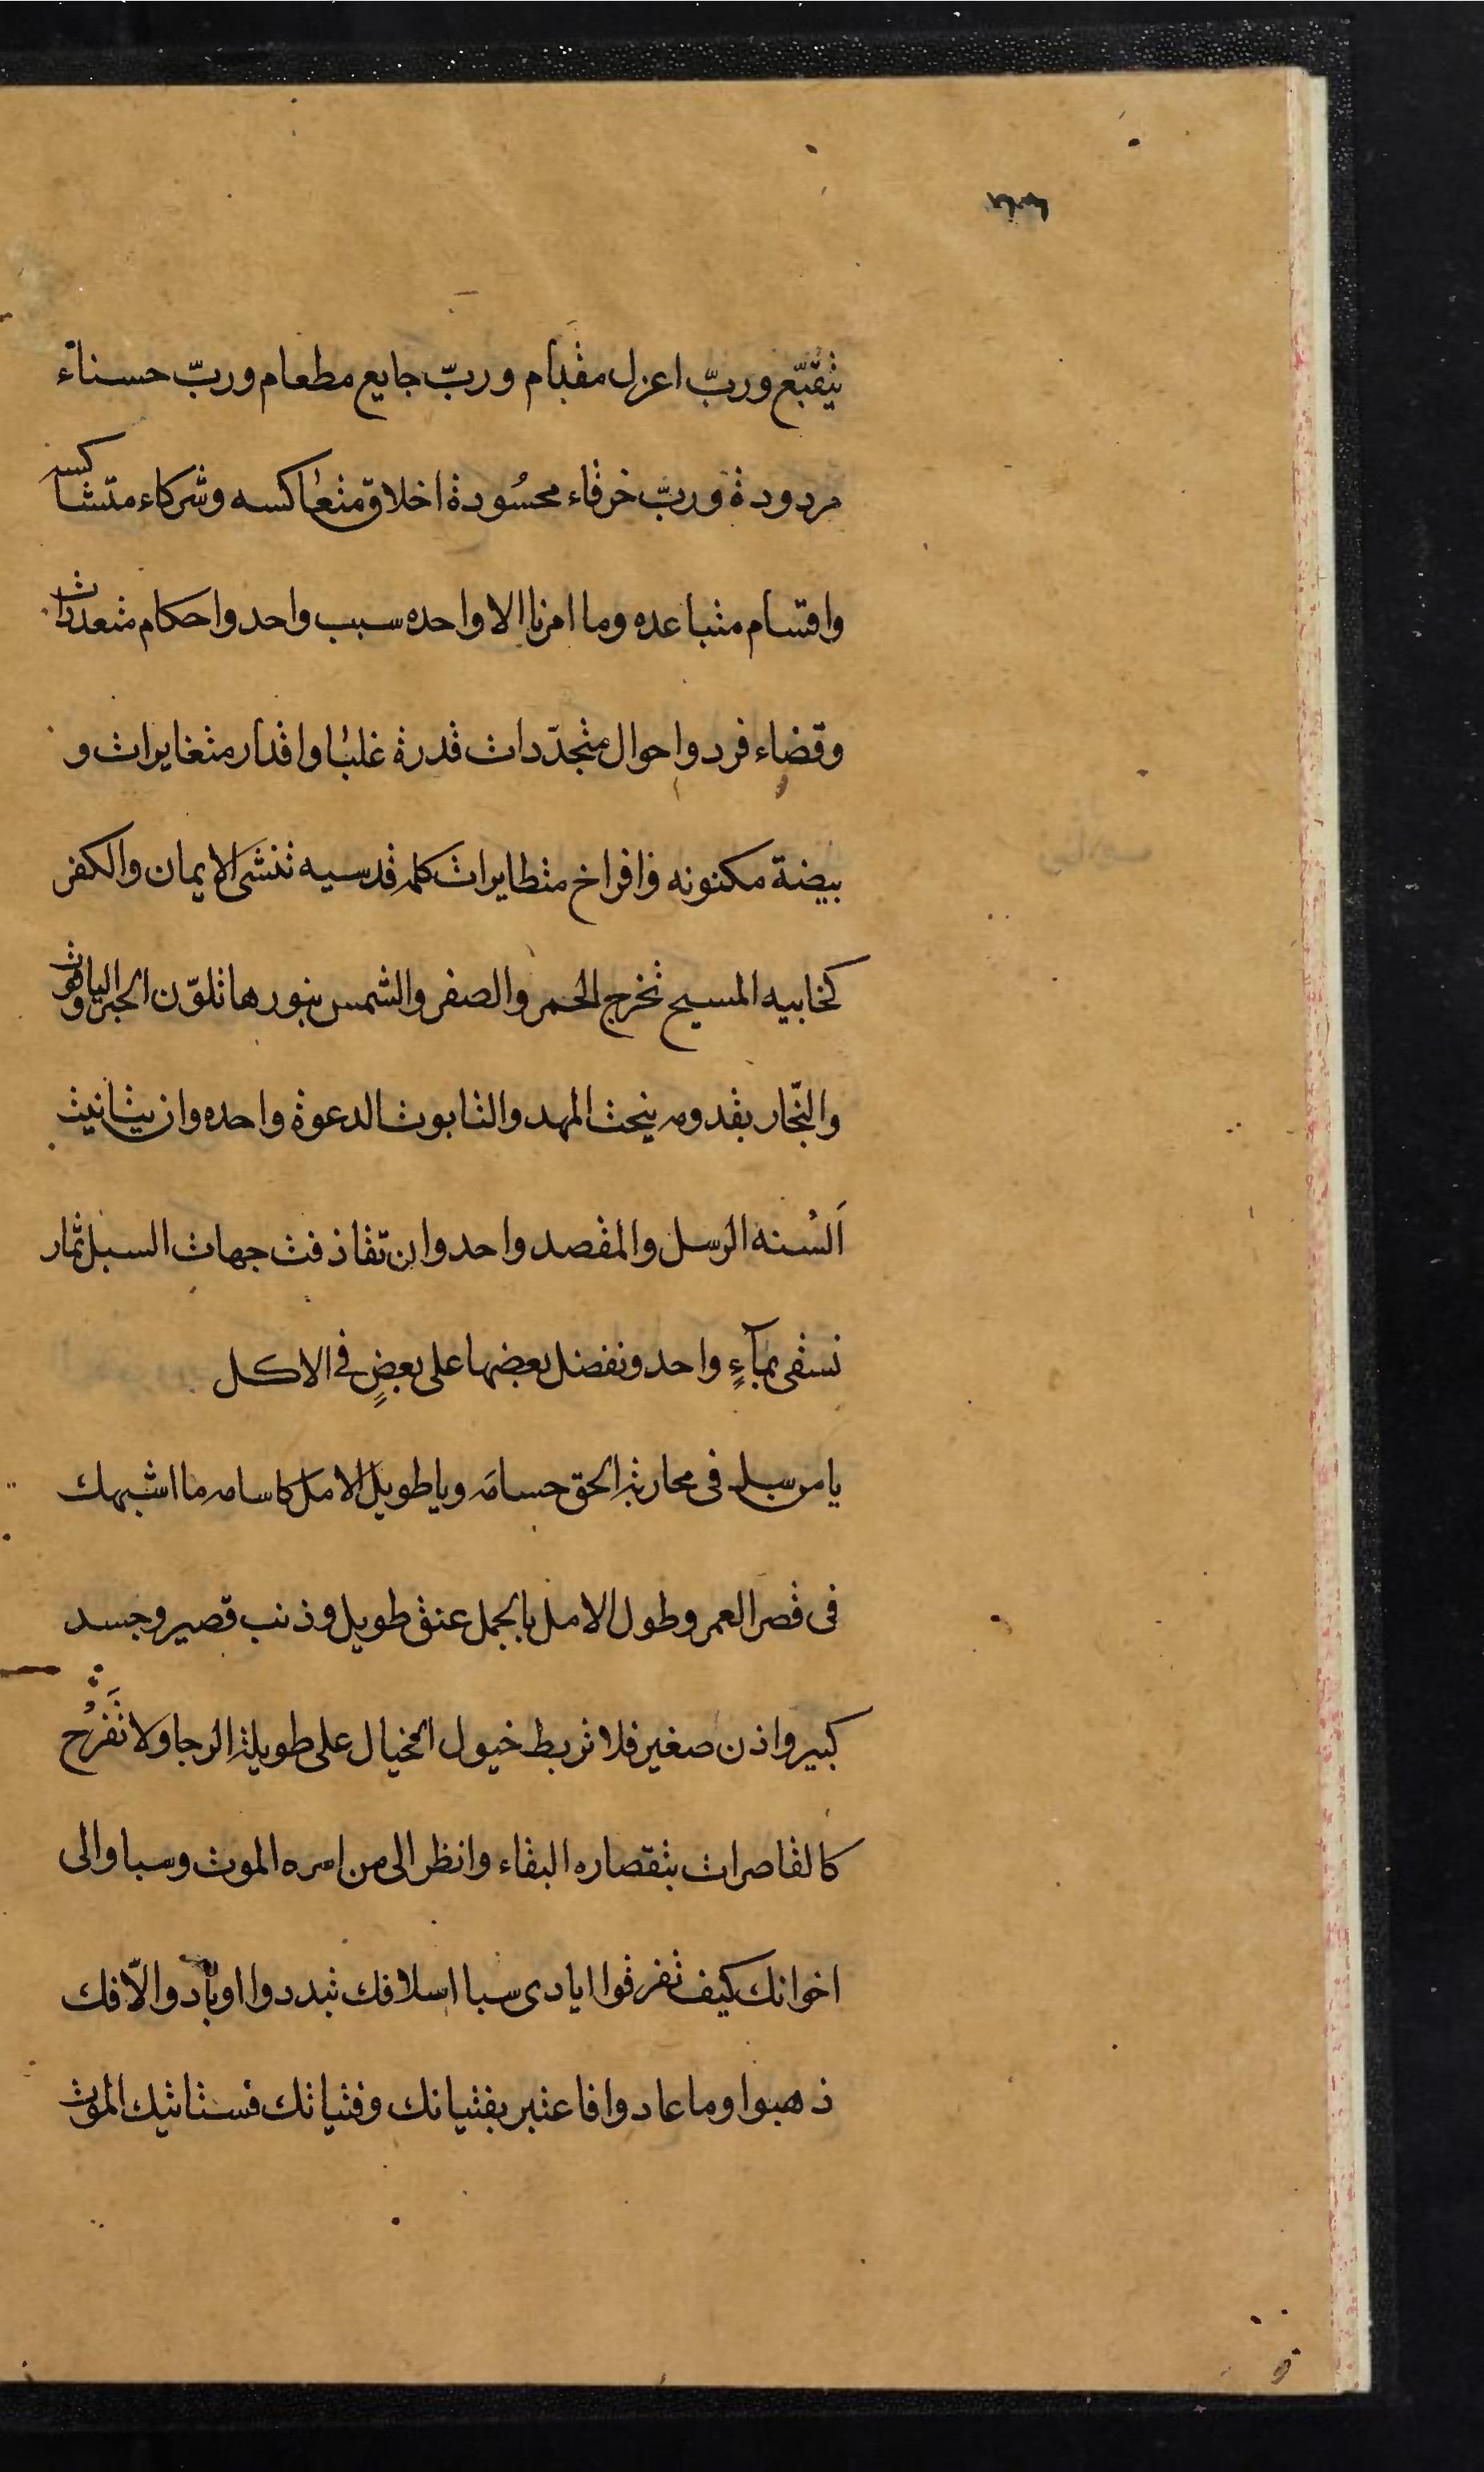 يتقبّع وربّ اعزل مقدام وربّ جايع مطعام وربّ حسناء
مردودة وربّ خرقاء محسُودة اخلاق متعاكسه وشركاء متشاكسه
واقسام متباعده وما امرنا الا واحده سبب واحد واحكام متعددات
وقضاء فرد واحوال متجدّدات قدرة غلبا واقدار متغايرات و
بيضة مكنونه وافراخ متطايرات كلمه قدسيه تنشئ الايمان والكفر
كخابيه المسيح تخرج الحمر والصفر والشمس بنورها تلوّن الحجر والياقوت
والنجّار بقدومه ينحت المهد والتابوت الدعوة واحده وان تباينت
اَلسُنه الرسل والمقصد واحد وان تقاذفت جهات السبل ثمار
تسقى بمآءٍ واحد ونفضل بعضها على بعضٍ فى الاكل
يا من سل فى محاربة الحق حسامه ويا طويل الامل كاسامه ما اشبهك
فى قصر العمر وطول الامل بالجمل عنق طويل وذنب قصير وجسد
كبير واذن صغير فلا تربط خيول الخيال على طويلة الرجا ولا تَفْرَح
كالقاصرات بتقصاره البقاء وانظر الى من اسره الموت وسبا والى
اخوانك كيف تفرقوا ايادى سبا اسلافك تبددوا او بادوا والاّفك
ذهبوا وما عادوا فاعتبر بفتيانك وفتياتك فستاتيك الموت